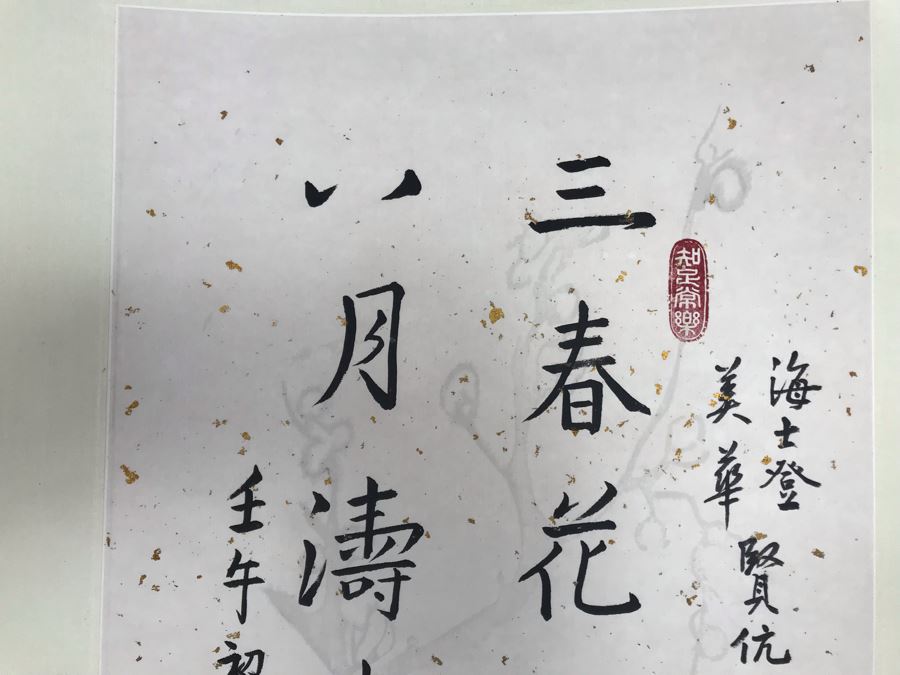 海士登
美華
賢伉
知足常樂
三春花
八月濤
壬午初